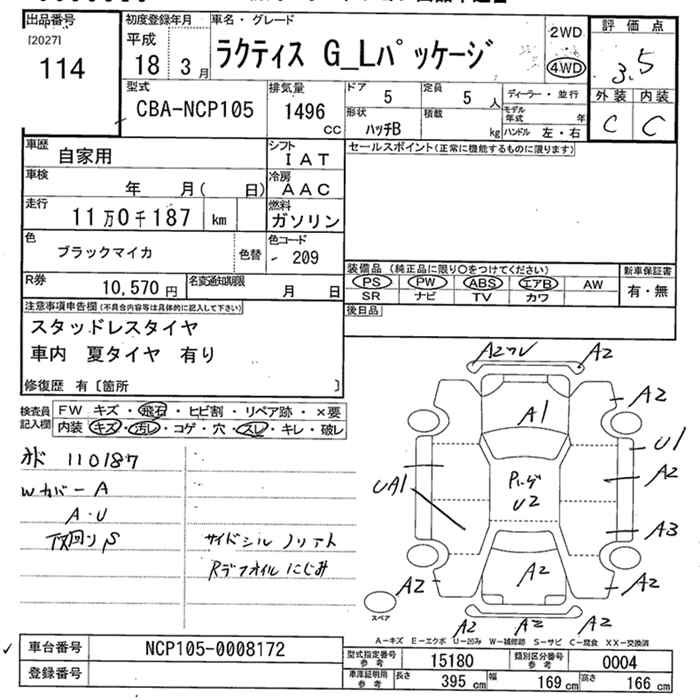 出品番号
[2027]
114
初度登録年月
平成
18 3月
車名・グレード
ラクティス G_Lパッケージ
2WD
4WD
評価点
3.5
外装 内装
C C
型式
CBA-NCP105
排気量
1496
CC
ドア
5
定員
5人
形状
ハッチB
積載
kg
ディーラー・並行
モデル年式 年
ハンドル 左・右
車歴
自家用
シフト
IAT
車検
年 月( 日)
冷房
AAC
走行
11万0千187 km
燃料
ガソリン
色
ブラックマイカ
色替
色コード
209
R券
10,570円
名変通知期限
月 日
セールスポイント(正常に機能するものに限ります)
装備品(純正品に限り○をつけてください)
PS PW ABS エアB AW
SR ナビ TV カワ
新車保証書
有・無
後日品
注意事項申告欄(不具合内容等は具体的に記入して下さい)
スタッドレスタイヤ
車内 夏タイヤ 有り
修復歴 有〔箇所 〕
検査員記入欄
FW キズ・飛石・ヒビ割・リペア跡・×要
内装 キズ・汚レ・コゲ・穴・スレ・キレ・破レ
110187
Wカバー A
A・U
下回り S
サイドシル ノリアト
Rデフオイルにじみ
A2 A2
A1
A2
U1
A2
UA1
U2
A3
A2
A2
A2
A2 A2 A2
スペア
A-キズ E-エクボ U-凹み W-補修跡 S-サビ C-腐食 XX-交換済
車台番号
NCP105-0008172
登録番号
型式指定番号 参考
15180
類別区分番号 参考
0004
車庫証明用 参考
長さ 395 cm
幅 169 cm
高さ 166 cm